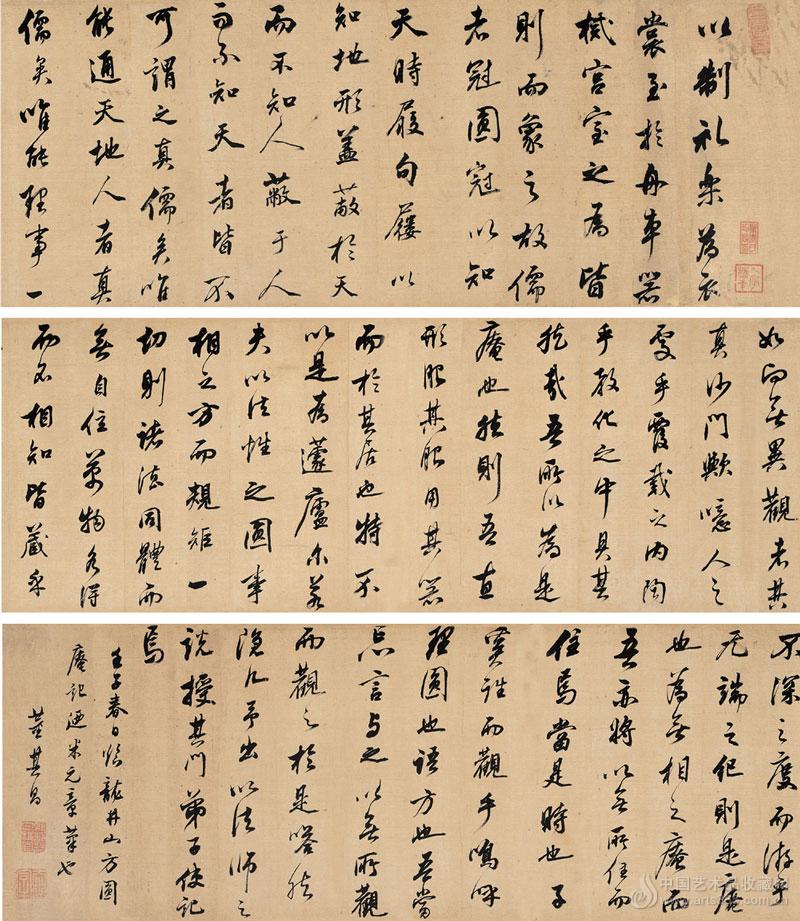 以制礼乐为衣
裳至於舟車器
械宫室之為皆
則而象之故儒
者冠圓冠以知
天時履句屨以
知地形盖蔽於天
而不知人蔽于人
而不知天者皆不
可謂之真儒矣唯
能通天地人者真
儒矣唯能理事一
如向無異觀者其
真沙門歟噫人之
處乎覆載之内陶
乎教化之中具其
然哉吾所以為是
庵也然則吾直
形服其服用其器
而於其居也特不
以是為蘧廬尔若
夫以法性之圓事
相之方而規矩一
切則諸法同體而
無自住萬物各得
而不相知皆藏乎
不深之度而游乎
无端之纪則是庵
也為無相之庵而
吾亦将以無所住而
住焉當是時也子
奚往而觀乎嗚呼
理圓也語方也吾當
忘言与之以無所觀
而觀之於是嗒然
隐几予出以法師之
說授其門弟子使記
焉
壬子春日临龍井山方圓
庵記迺米元章筆也
董其昌
中国艺术品收藏网